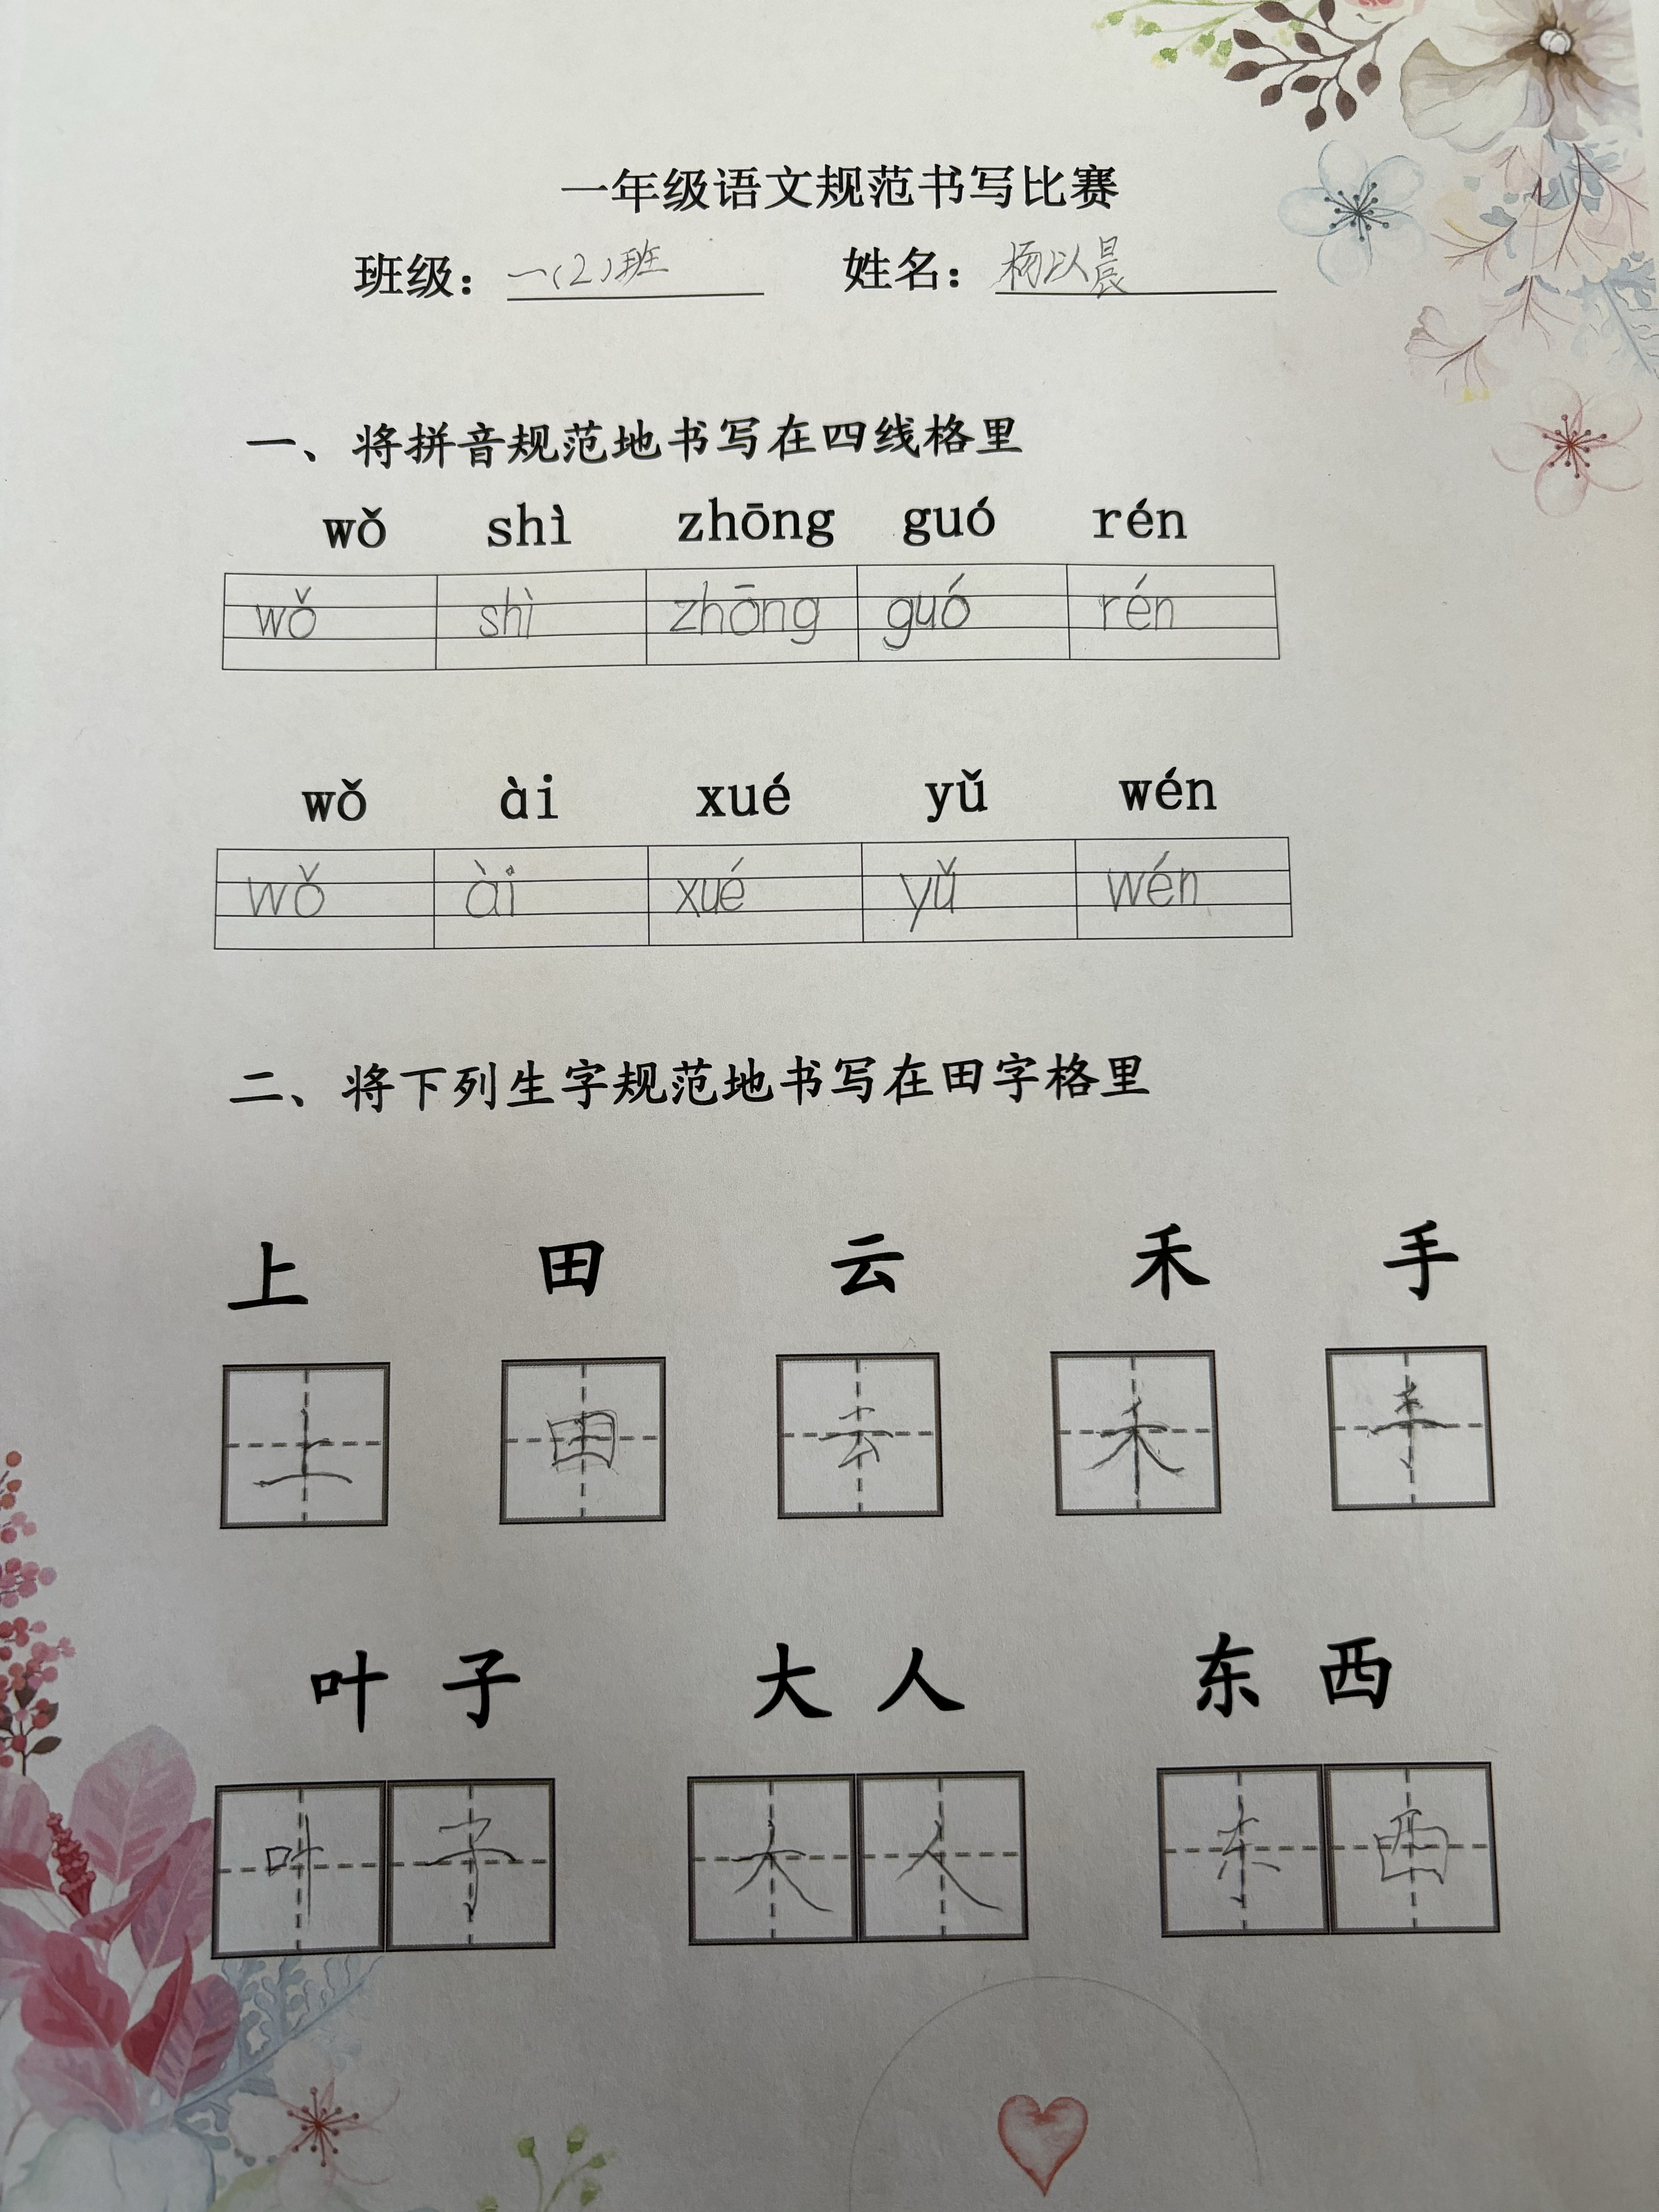 一年级语文规范书写比赛
班级：一（2）班 姓名：杨以晨
一、将拼音规范地书写在四线格里
wǒ shì zhōng guó rén
wǒ shì zhōng guó rén
wǒ ài xué yǔ wén
wǒ ài xué yǔ wén
二、将下列生字规范地书写在田字格里
上 田 云 禾 手
上 田 云 禾 手
叶 子 大 人 东 西
叶 子 大 人 东 西